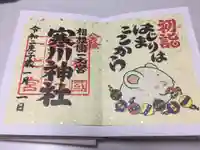 初詣
はじまりは
ここから
相模國一之宮
寒川神社
令和二年
一月一日